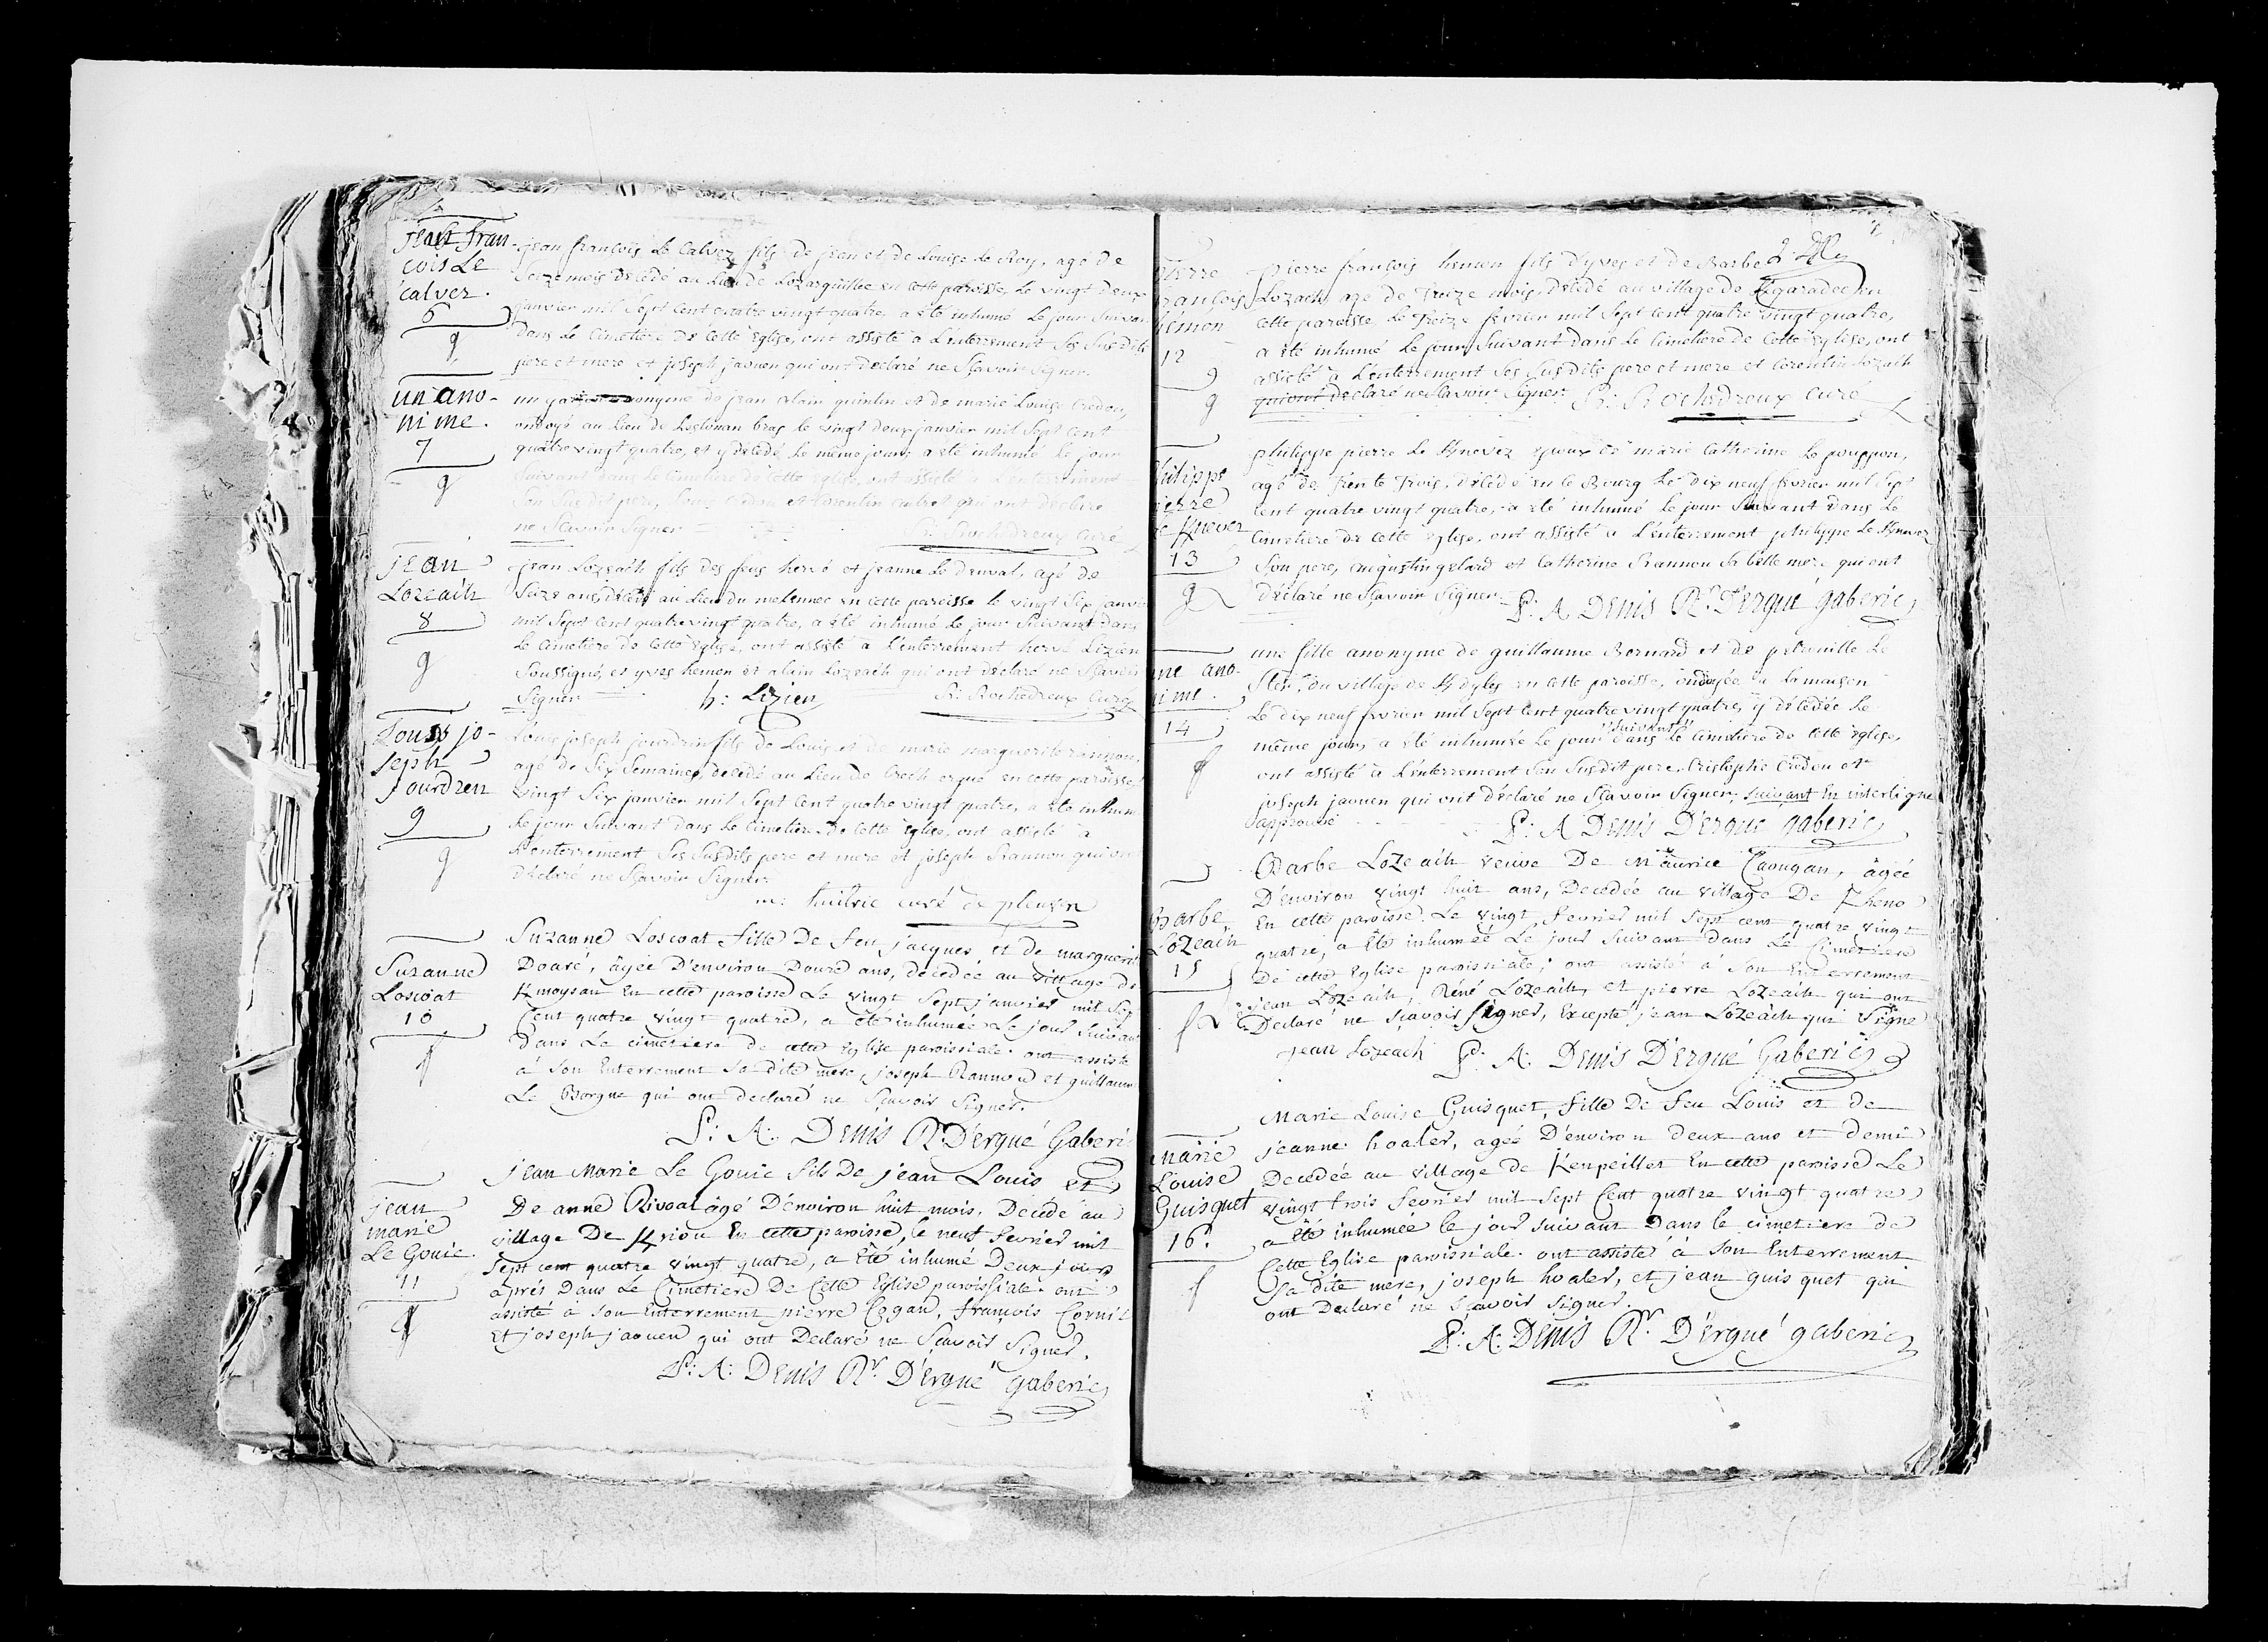 jean fran-
cois Le
calvez.
6
jean françois Le Calvez fils de jean et de Louise Le Roy, agé de
Seize mois décédé au Lieu de Lezarguillec en cette paroisse, Le vingt deux
janvier mil Sept Cent quatre vingt quatre, a été inhumé Le jour Suivan
dans Le Cimetiere de Cette Eglise, ont assisté a L'enterrement Ses Susdits
pere et mere et joseph jaouen qui ont déclaré ne Sçavoir Signer.
un ano-
nime.
7
un anonyme de jean Alain quintin et de marie Louise Credou,
ondoyé au Lieu de Lestonan bras le vingt deux janvier mil Sept Cent
quatre vingt quatre, et y décédé Le même jour, a été inhumé Le jour
Suivant dans Le Cimetiere de Cette Eglise, ont assisté a L'enterrement
Son Susdit pere, et Corentin qui ont déclaré
ne Sçavoir Signer R: Rochedreux Curé
jean
Lozeaih
8
jean Lozeaih fils des feus hervé et jeanne Le Denval, agé de
Seize ans, décédé au Lieu du melennec en cette paroisse le vingt Six janvi
mil Sept Cent quatre vingt quatre, a été inhumé Le jour Suivant dans
Le Cimetiere de Cette Eglise, ont assisté a L'enterrement hervé Lizien
Soussigné, et yves hemon et alain Lozeaih qui ont déclaré ne Sçavoir
Signer h: Lizien R: Rochedreux Curé
Louis jo-
seph
jourdren
9
Louis joseph jourdren fils de Louis et de marie marguerite
agé de Six Semaines, décédé au Lieu de Croch ergué en cette paroisse,
vingt Six janvier mil Sept Cent quatre vingt quatre, a été inhum
Le jour Suivant dans Le Cimetiere De Cette Eglise, ont assisté a
L'enterrement Ses Susdits pere et mere et joseph Rannou qui on
Déclaré ne Sçavoir Signer.
curé de pleuven
Suzanne
Loscoat
10
Suzanne Loscoat fille De feu jacques et de marguerit
Doaré, âgée D'environ Douze ans, décédée au village de
Kmoysan En cette paroisse Le vingt Sept janvier mil Sep
Cent quatre vingt quatre, a été inhumée Le jour Suivan
Dans Le cimetiere de cette Eglise paroissiale. ont assisté
à Son Enterrement Sa dite mere, joseph Rannou et guillaum
Le Borgne qui ont declaré ne Sçavoir Signer.
P: A: Denis Rr. D'ergué Gaberi
jean
marie
Le Gouic.
11
jean Marie Le Gouic fils De jean Louis et
De anne Rivoal âgé D'environ huit mois, Decede au
village De Kriou En cette paroisse, le neuf fevrier mil
Sept cent quatre vingt quatre, a été inhumé Deux jours
après Dans Le Cimetiere De Cette Eglise paroissiale. ont
assisté à Son Enterrement pierre Cogan, françois Cornil
Et joseph jaouen qui ont Declaré ne Sçavoir Signer.
P: A: Denis Rr. D'ergué gaberic
pierre
françois
hémon
12
Pierre françois hemon fils d'yves et de Barbe
Lozach, agé de Treize mois, décédé au village de Kgaradec en
cette paroisse, Le Treize fevrier mil Sept Cent quatre vingt quatre,
a été inhumé Le jour Suivant dans Le Cimetiere de Cette Eglise, ont
assisté a L'enterrement Ses Susdits pere et mere et Corentin Lozaih
qui ont déclaré ne Sçavoir Signer. R: Rochedreux Curé
philippe
pierre
Le Knevez
13
philippe pierre Le Knevez Epoux de marie Catherine Le pouppon,
agé de Trente Trois, décédé en le Bourg Le dix neuf fevrier mil Sept
Cent quatre vingt quatre, a été inhumé le jour Suivant dans Le
Cimetiere de Cette Eglise, ont assisté a L'enterrement philippe Le Knevez
Son pere, augustin gelard et Catherine Rannou Sa belle mere qui ont
déclaré ne Sçavoir Signer. P: A Denis Rr. D'ergué gaberic
une ano-
nime
14
une fille anonyme de guillaume Bernard et de petronille Le
Ster, du village de Kdyles en cette paroisse, ondoyée a La maison
Le dix neuf fevrier mil Sept Cent quatre vingt quatre, y décédée Le
même jour, a été inhumée Le jour "suivant" dans Le Cimetiere de Cette Eglise,
ont assisté a L'enterrement Son Susdit pere, Cristophe Credou et
joseph jaouen qui ont déclaré ne Sçavoir Signer; suivant En interligne
approuvé P: A Denis D'ergué gaberic
Barbe
Lozeaih
15
Barbe Lozeaih veuve De Maurice Caougan, âgée
D'environ vingt huit ans, Decedée au village De Kheno
En cette paroisse. Le vingt fevrier mil Sept cent quatre vingt
quatre, a été inhumée Le jour Suivant dans Le Cimetiere
De cette Eglise paroissiale; ont assisté à Son Enterrement
jean Lozeaih, Réné Lozeaih, et pierre Lozeaih qui ont
Declaré ne Sçavoir Signer, Excepté jean Lozeaih qui Signe
jean Lozeach P: A: Denis D'ergué Gaberic
Marie
Louise
Guisquet
16.
Marie Louise Guisquet, fille De feu Louis et de
jeanne hoaler, agée D'environ deux ans et demi
Decedée au village de Kenpeillet En cette paroisse Le
vingt trois fevrier mil Sept Cent quatre vingt quatre
a été inhumée le jour suivant Dans le cimetiere de
Cette Eglise paroissiale. ont assisté à Son Enterrement
Sa dite mere, joseph hoaler, et jean guisquet qui
ont Declaré ne Sçavoir Signer.
P: A: Denis Rr. D'ergué gaberic